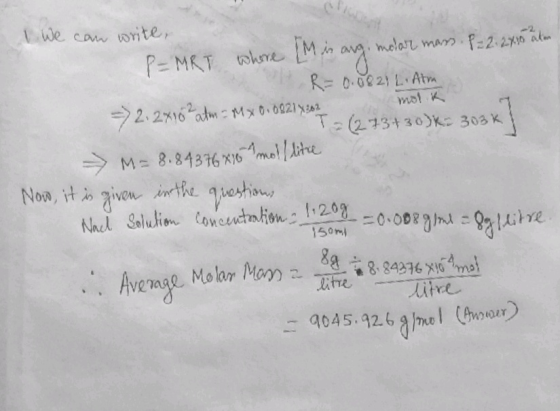 We can write,
P=MRT where [M is avg. molar mass. P=2.2x10⁻² atm
R= 0.0821 L.Atm / mol.K
⇒ 2.2x10⁻² atm = M x 0.0821 x 303
T = (273+30)K= 303K]
⇒ M = 8.84376 x10⁻⁴ mol/litre
Now, it is given in the question,
Nacl Solution Concentration = 1.20g / 150ml = 0.008 g/ml = 8g/litre.
∴ Average Molar Mass = 8g / litre ÷ 8.84376 x10⁻⁴ mol / litre
= 9045.926 g/mol (Answer)